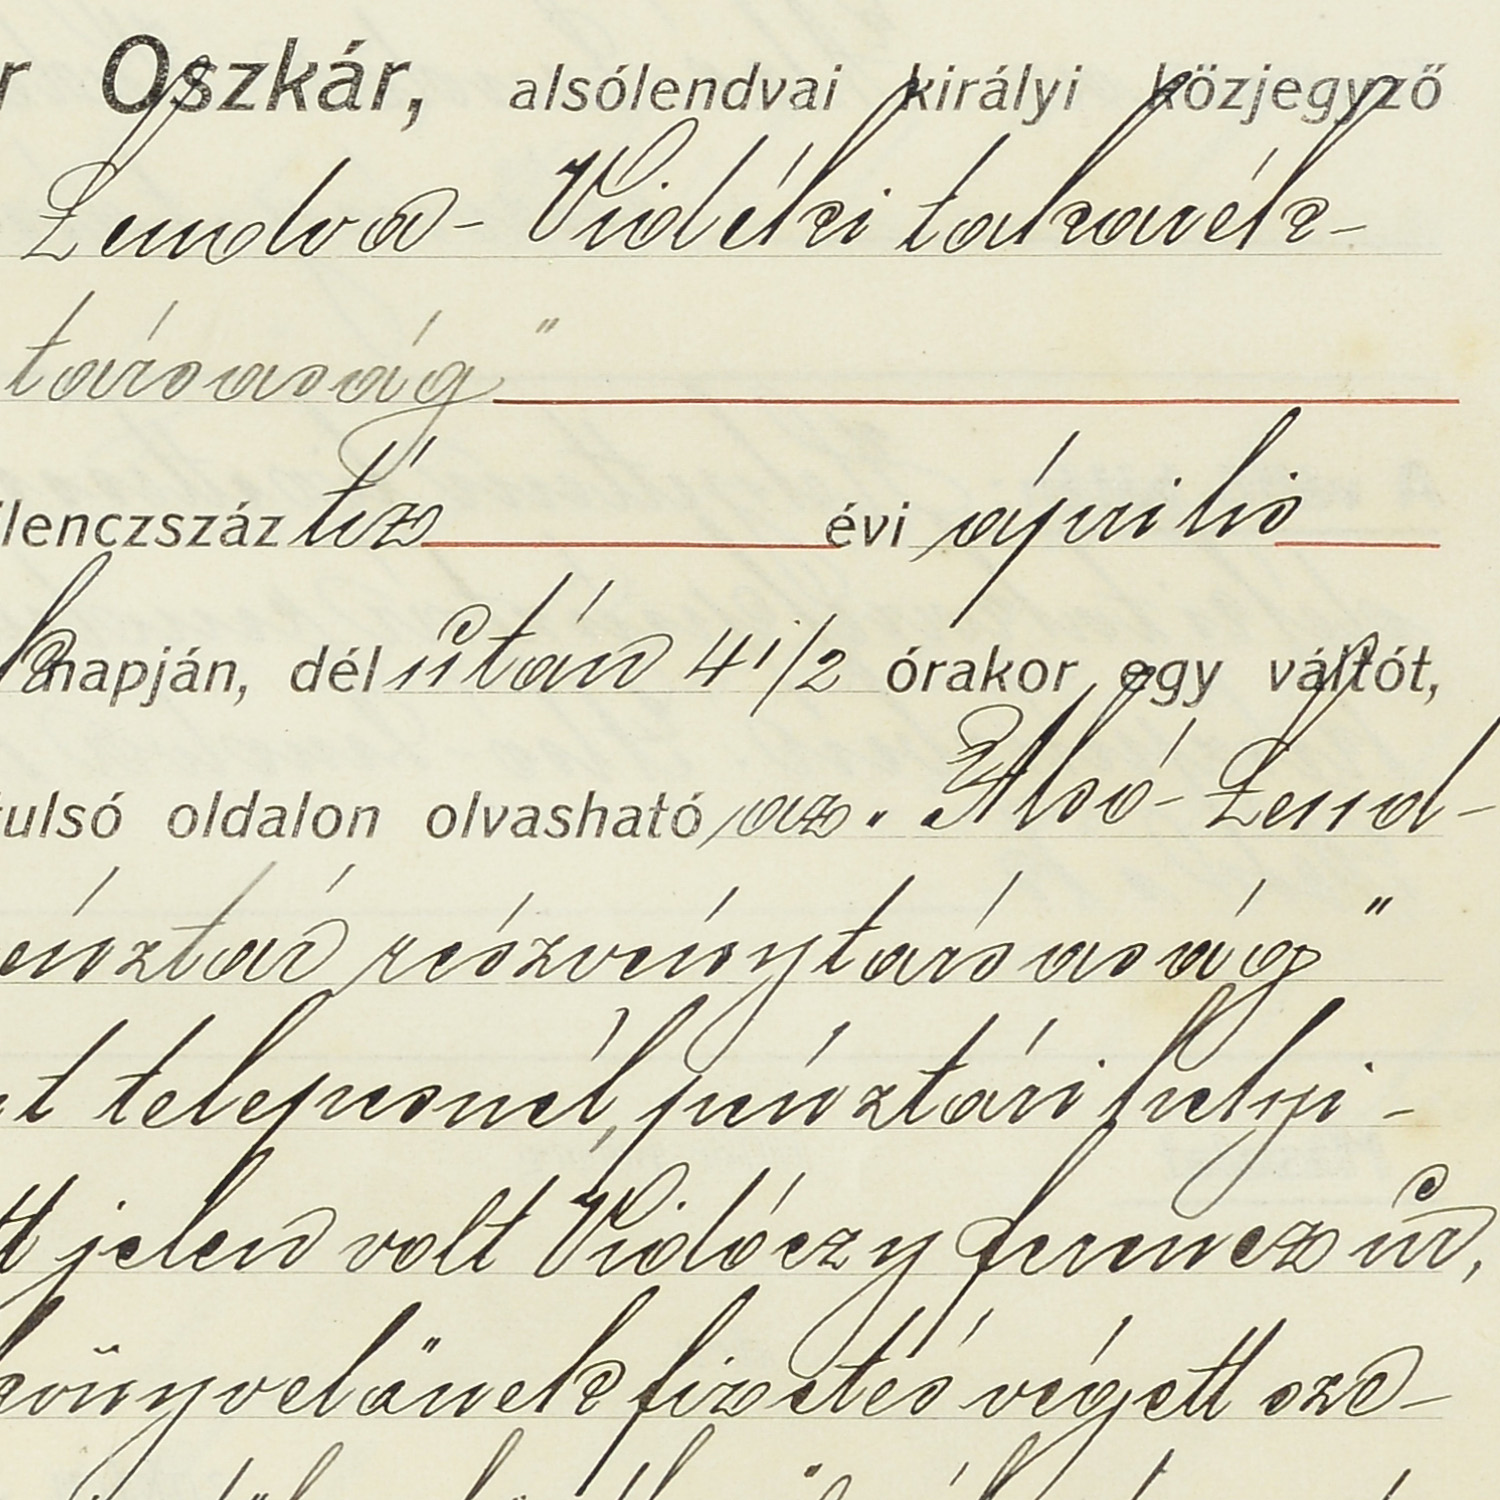 r Oszkár, alsólendvai királyi közjegyző
Lendva- Vidéki takarék-
társaság"
ilenczszáz tíz évi április
napján, dél után 4 1/2 órakor egy váltót,
tulsó oldalon olvasható az „Alsó-Lend-
énztár részvénytársaság"
nt telepesnél, pénztári helyi-
tt jelen volt Vidóczy Ferencz úr,
könyvelőnek fizetés végett sze-